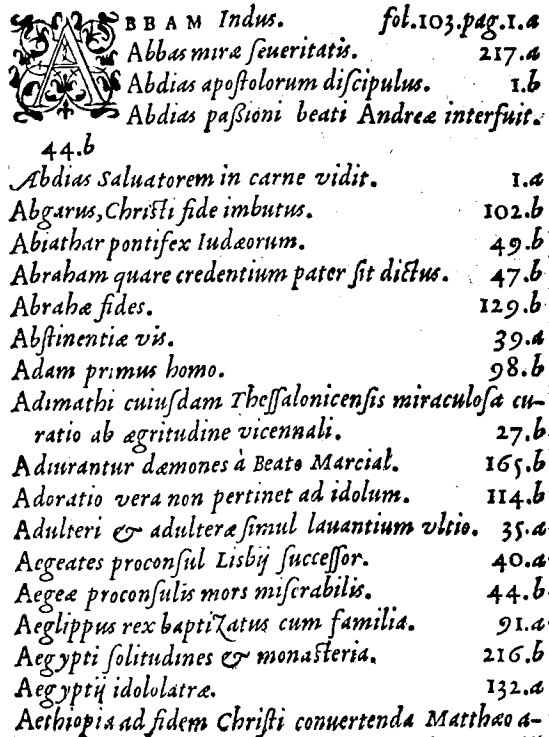 ABBAM Indus. fol.103.pag.1.a
Abbas miræ ſeueritatis. 217.a
Abdias apoſtolorum diſcipulus. 1.b
Abdias paßioni beati Andreæ interfuit.
44.b
Abdias Saluatorem in carne vidit. 1.a
Abgarus, Chriſti fide imbutus. 102.b
Abiathar pontifex Iudæorum. 49.b
Abraham quare credentium pater ſit dictus. 47.b
Abrahæ fides. 129.b
Abſtinentiæ vis. 39.a
Adam primus homo. 98.b
Adimathi cuiuſdam Theſſalonicenſis miraculoſa cu-
ratio ab ægritudine vicennali. 27.b
Adiurantur dæmones à Beato Marcial. 165.b
Adoratio vera non pertinet ad idolum. 114.b
Adulteri & adulteræ ſimul lauantium vltio. 35.a
Aegeates proconſul Lisbij ſucceſſor. 40.a
Aegeæ proconſulis mors miſerabilis. 44.b
Aeglippus rex baptizatus cum familia. 91.a
Aegypti ſolitudines & monaſteria. 216.b
Aegyptij idololatræ. 132.a
Aethiopia ad fidem Chriſti conuertenda Matthæo a-